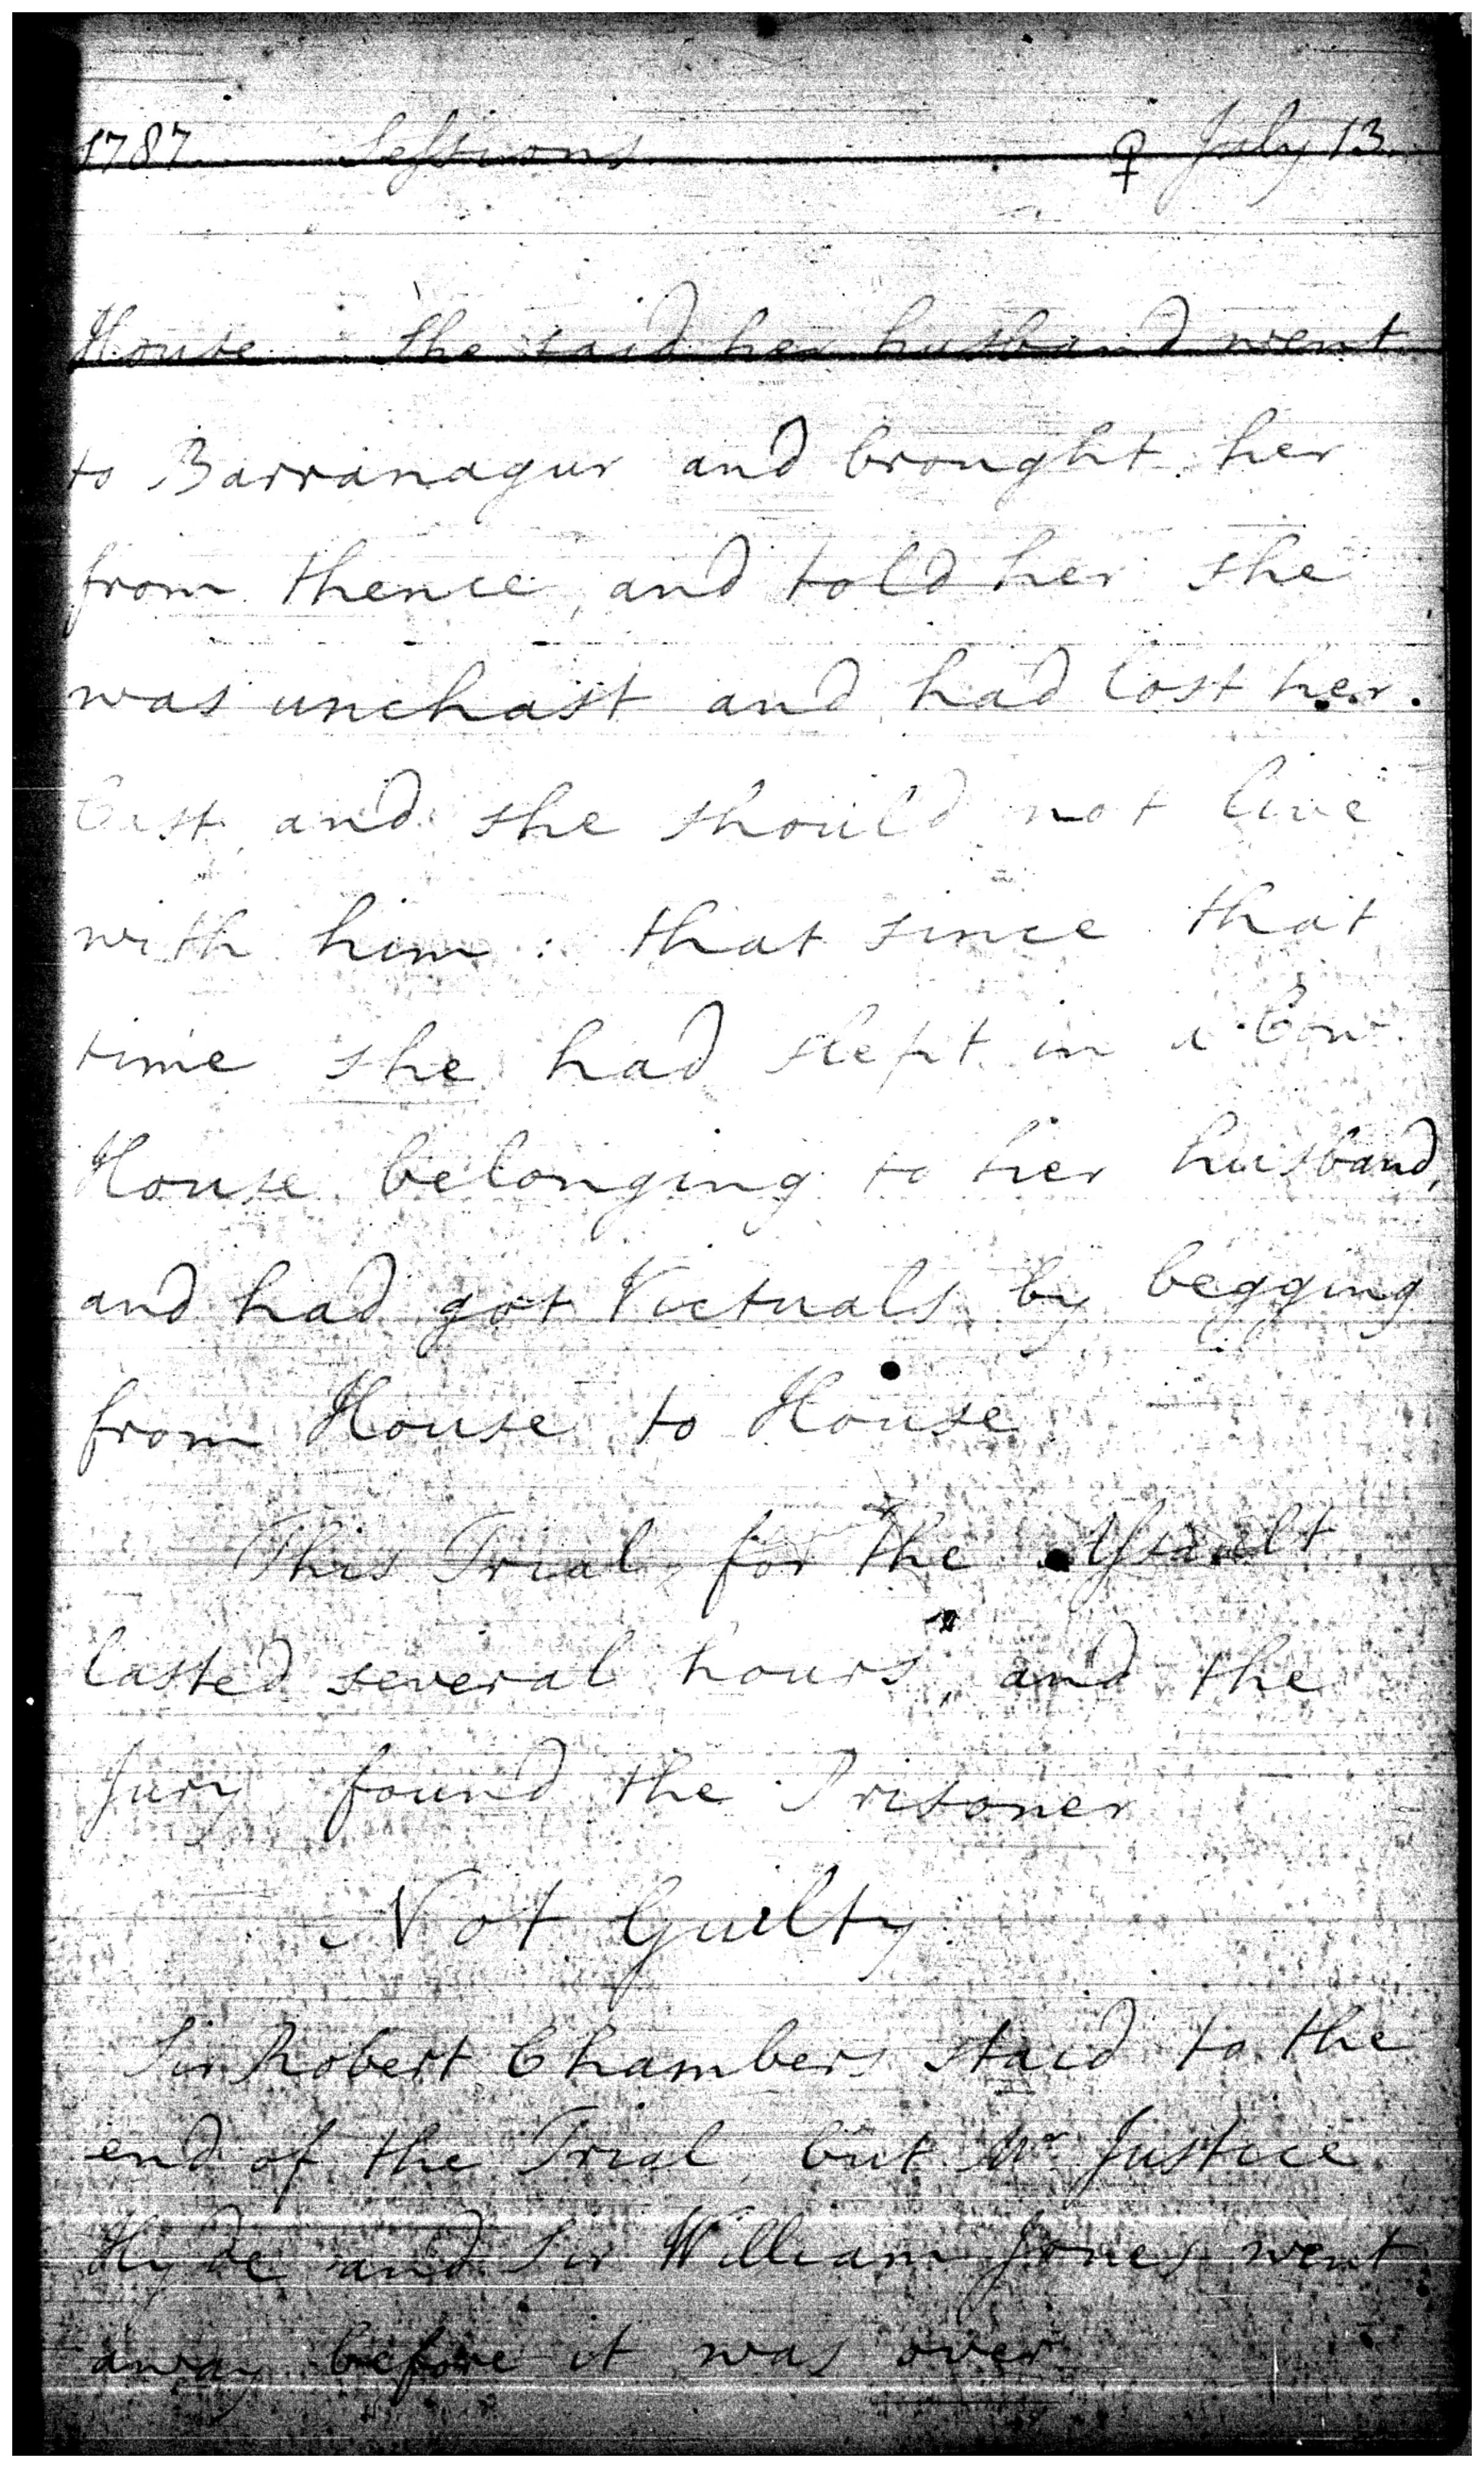 1787 Sessions ♀ July 13.
House. She said her husband went
to Barranagur and brought her
from thence, and told her she
was unchast and had lost her
Cast, and she should not live
with him: that since that
time she had slept in a Cow
House belonging to her husband,
and had got Victuals by begging
from House to House.
This Trial, for the Assault
lasted several hours, and the
Jury found the Prisoner
Not Guilty.
Sir Robert Chambers staid to the
end of the Trial, but Mr Justice
Hyde and Sir William Jones went
away before it was over.